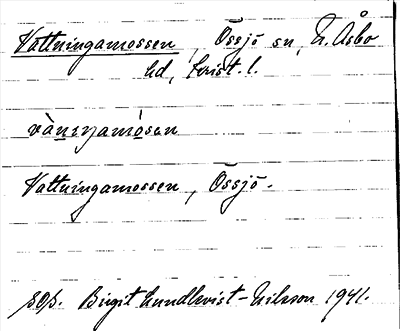 Vattningamossen, Össjö sn, N. Åsbo
hd, Krist. l.
Vattningamossen, Össjö.
Birgit Lundkvist-Nilsson 1941.